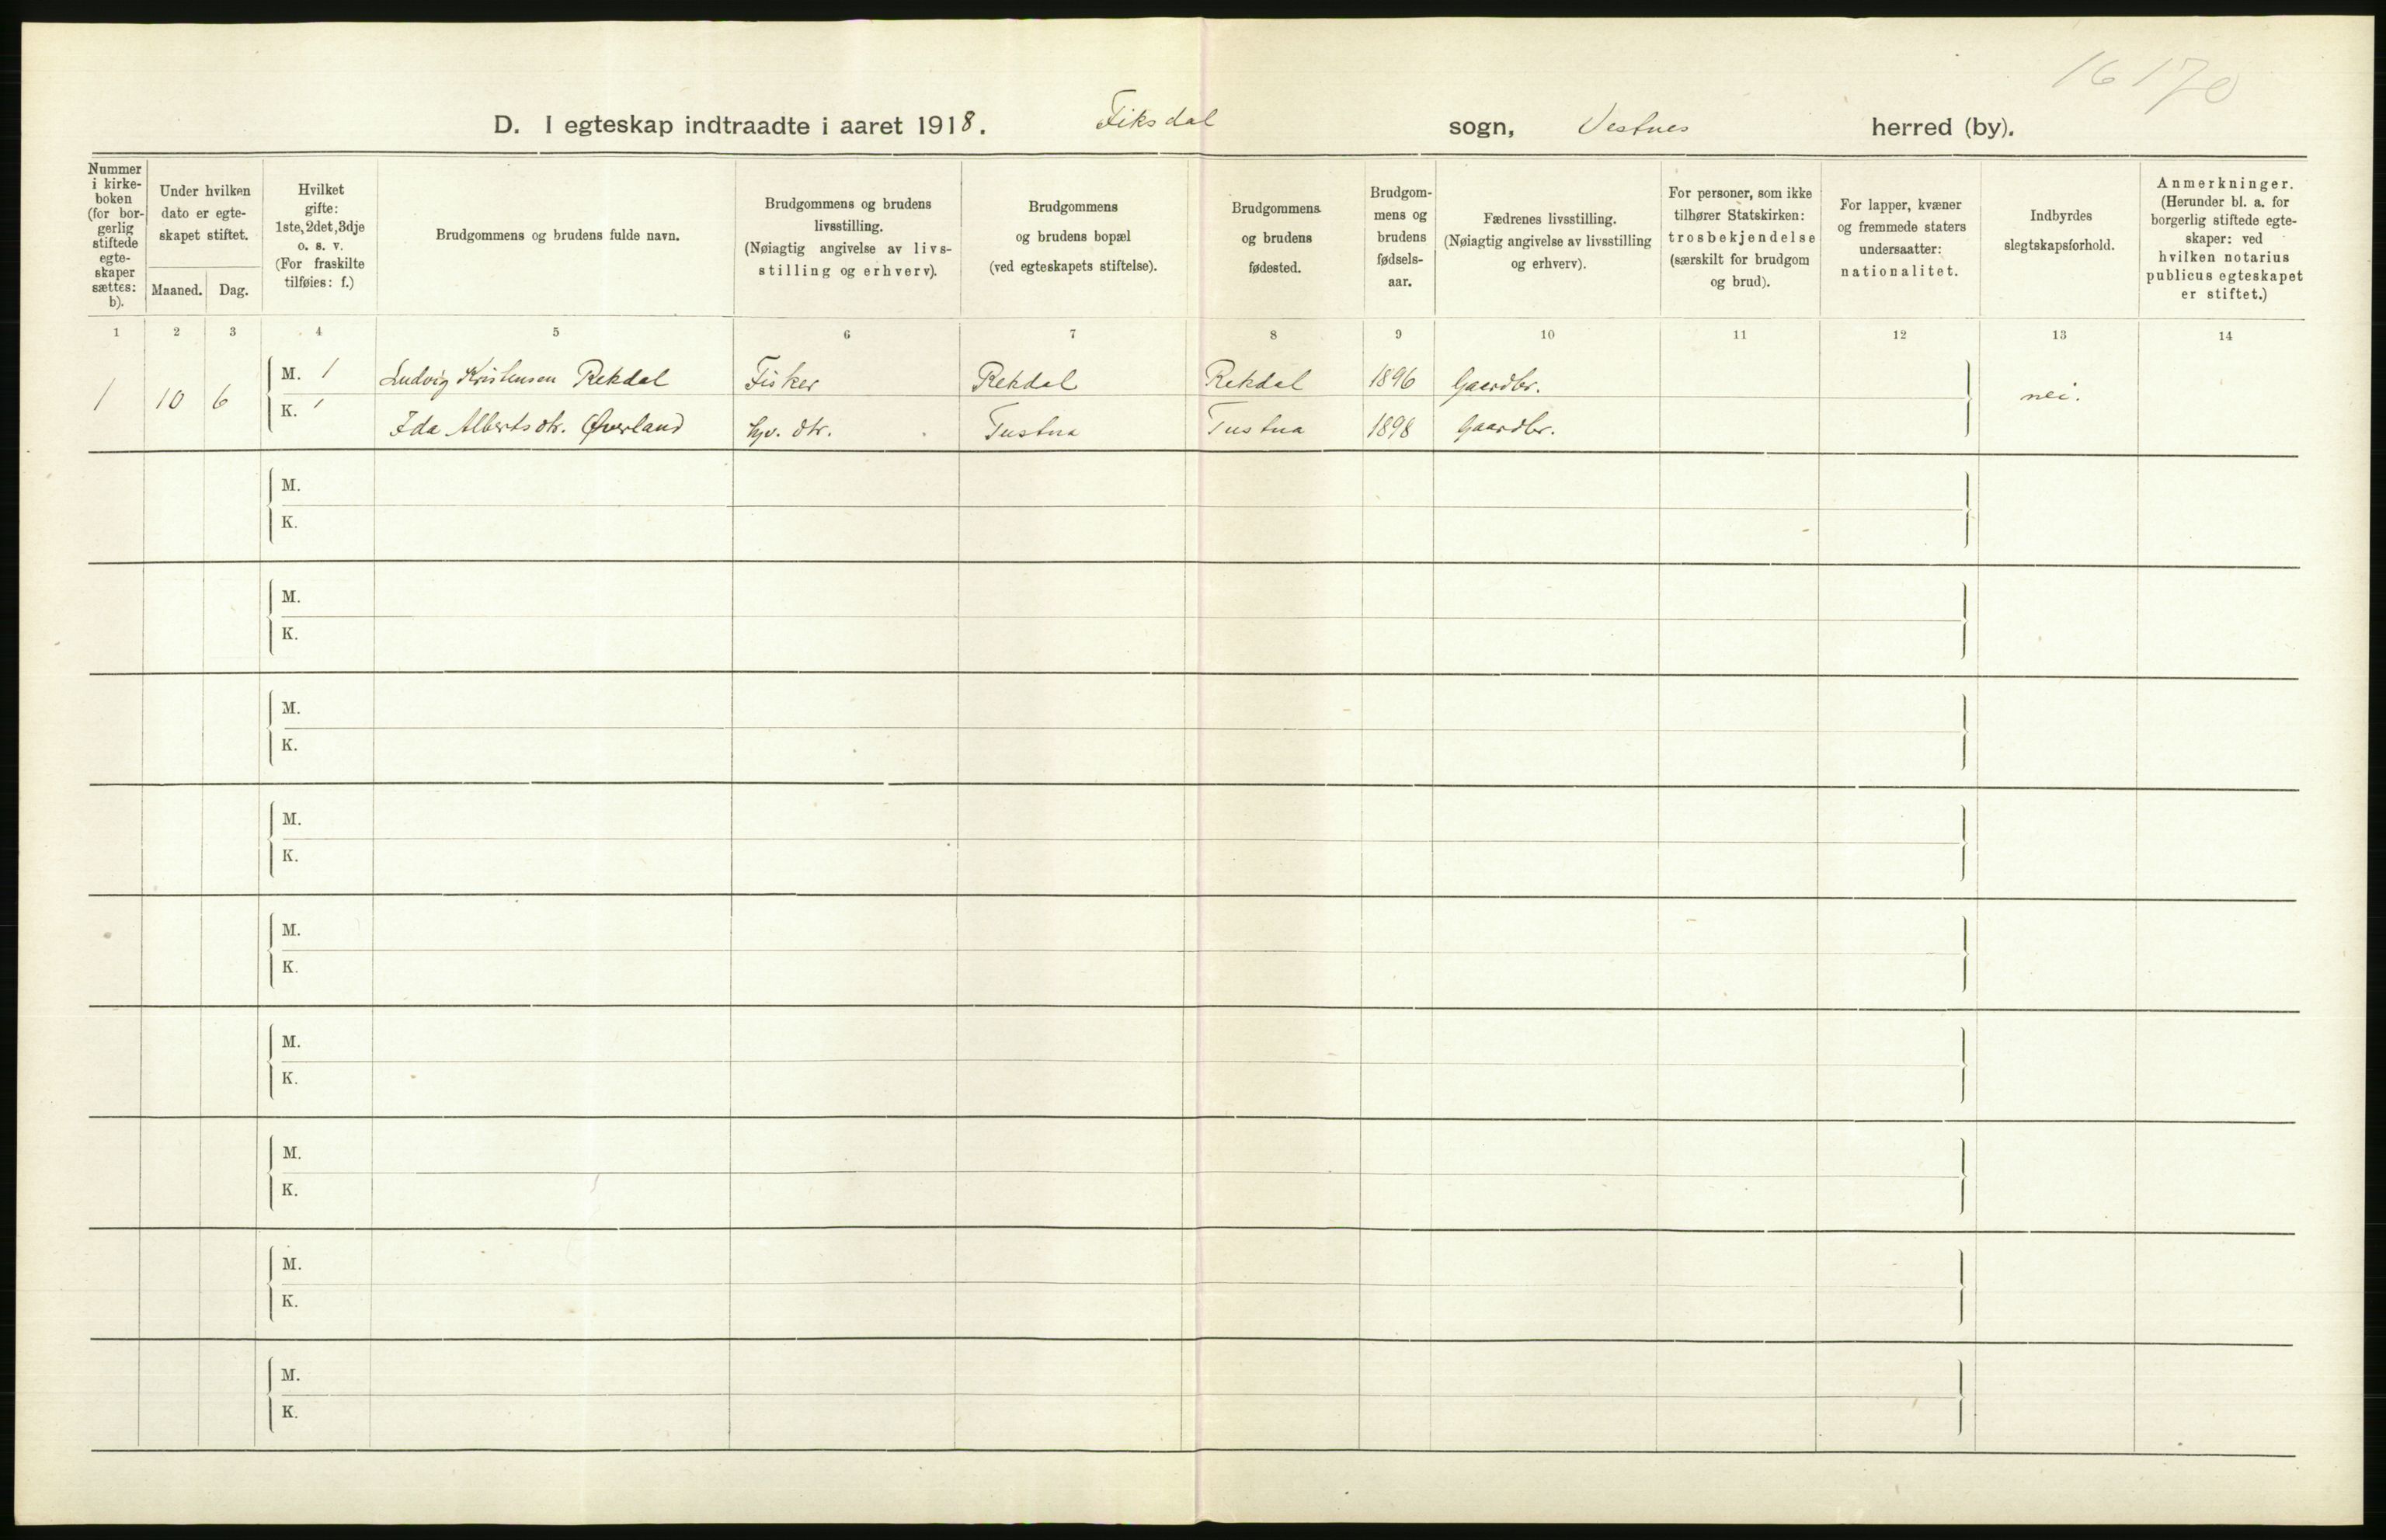 16170
D. I egteskap indtraadte i aaret 1918. Fiksdal sogn, Vestnes herred (by).
Nummer
i kirke-
boken
(for bor-
gerlig
stiftede
egte-
skaper
sættes:
b).
Under hvilken
dato er egte-
skapet stiftet.
Maaned. Dag.
Hvilket
gifte:
1ste, 2det, 3dje
o. s. v.
(For fraskilte
tilføies: f.)
Brudgommens og brudens fulde navn.
Brudgommens og brudens
livsstilling.
(Nøiagtig angivelse av livs-
stilling og erhverv).
Brudgommens
og brudens bopæl
(ved egteskapets stiftelse).
Brudgommens
og brudens
fødested.
Brudgom-
mens og
brudens
fødsels-
aar.
Fædrenes livsstilling.
(Nøiagtig angivelse av livsstilling
og erhverv).
For personer, som ikke
tilhører Statskirken:
trosbekjendelse
(særskilt for brudgom
og brud).
For lapper, kvæner
og fremmede staters
undersaatter:
nationalitet.
Indbyrdes
slegtskapsforhold.
Anmerkninger.
(Herunder bl. a. for
borgerlig stiftede egte-
skaper: ved
hvilken notarius
publicus egteskapet
er stiftet.)
1 2 3 4 5 6 7 8 9 10 11 12 13 14
1 10 6 M. 1 Ludvig Kristensen Rekdal Fisker Rekdal Rekdal 1896 Gaardbr. nei.
K. 1 Ida Albertsdtr. Øverland hjv. dtr. Tustna Tustna 1898 Gaardbr.
M.
K.
M.
K.
M.
K.
M.
K.
M.
K.
M.
K.
M.
K.
M.
K.
M.
K.